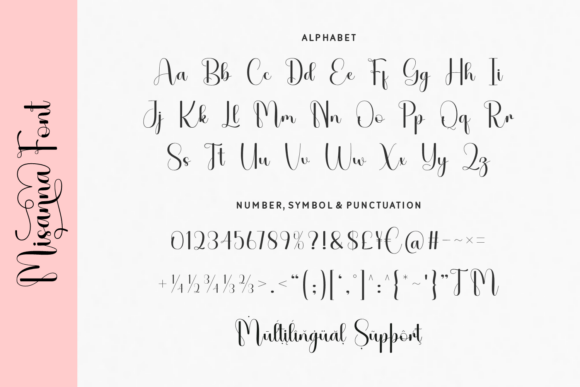 Misanna Font
ALPHABET
Aa Bb Cc Dd Ee Ff Gg Hh Ii
Jj Kk Ll Mm Nn Oo Pp Qq Rr
Ss Tt Uu Vv Ww Xx Yy Zz
NUMBER, SYMBOL & PUNCTUATION
0123456789%?!&$£¥€@#-~×=
+¼½¾⅓⅔>.<“(;)[‘,°]^:^{*~'}”TM
Multilingual Support